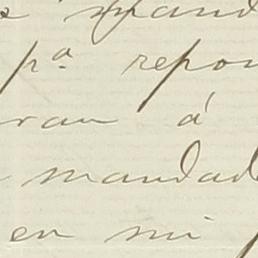 pª repon
ran á
mandad
en mi